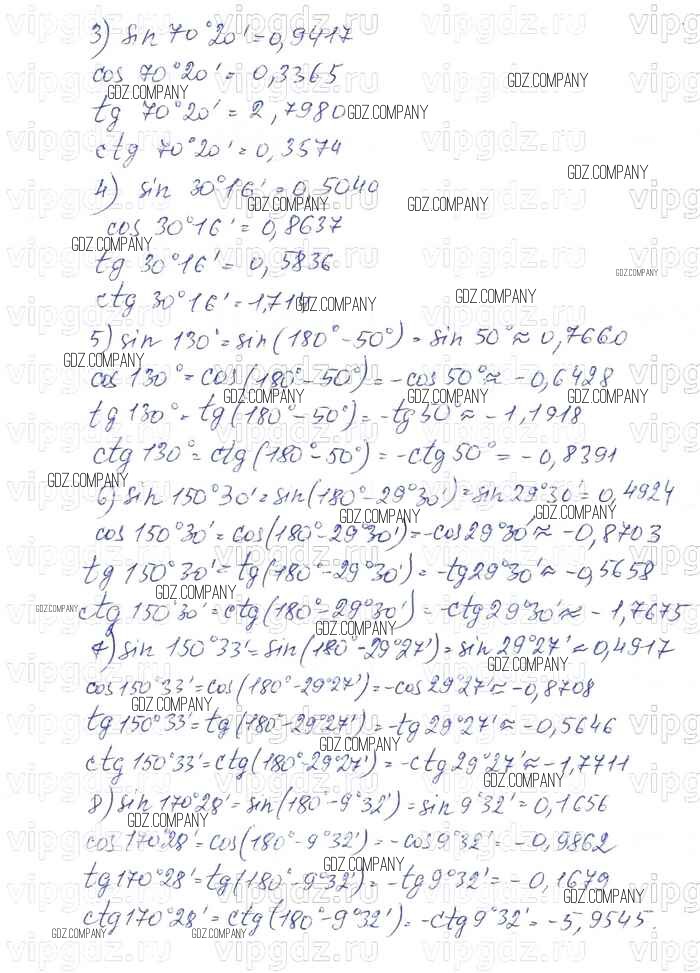 3) sin 70°20' = 0,9417
cos 70°20' = 0,3365
tg 70°20' = 2,7980
ctg 70°20' = 0,3574
4) sin 30°16' = 0,5040
cos 30°16' = 0,8637
tg 30°16' = 0,5836
ctg 30°16' = 1,714
5) sin 130' = sin(180° - 50°) = sin 50° ≈ 0,7660
cos 130° = cos(180° - 50°) = -cos 50° ≈ -0,6428
tg 130° = tg(180° - 50°) = -tg 50° ≈ -1,1918
ctg 130° = ctg(180° - 50°) = -ctg 50° = -0,8391
6) sin 150°30' = sin(180° - 29°30') = sin 29°30' = 0,4924
cos 150°30' = cos(180° - 29°30') = -cos 29°30' ≈ -0,8703
tg 150°30' = tg(180° - 29°30') = -tg 29°30' ≈ -0,5658
ctg 150°30' = ctg(180° - 29°30') = -ctg 29°30' ≈ -1,7675
7) sin 150°33' = sin(180° - 29°27') = sin 29°27' ≈ 0,4917
cos 150°33' = cos(180° - 29°27') = -cos 29°27' ≈ -0,8708
tg 150°33' = tg(180° - 29°27') = -tg 29°27' ≈ -0,5646
ctg 150°33' = ctg(180° - 29°27') = -ctg 29°27' ≈ -1,7711
8) sin 170°28' = sin(180° - 9°32') = sin 9°32' = 0,1656
cos 170°28' = cos(180° - 9°32') = -cos 9°32' = -0,9862
tg 170°28' = tg(180° - 9°32') = -tg 9°32' = -0,1679
ctg 170°28' = ctg(180° - 9°32') = -ctg 9°32' = -5,9545.